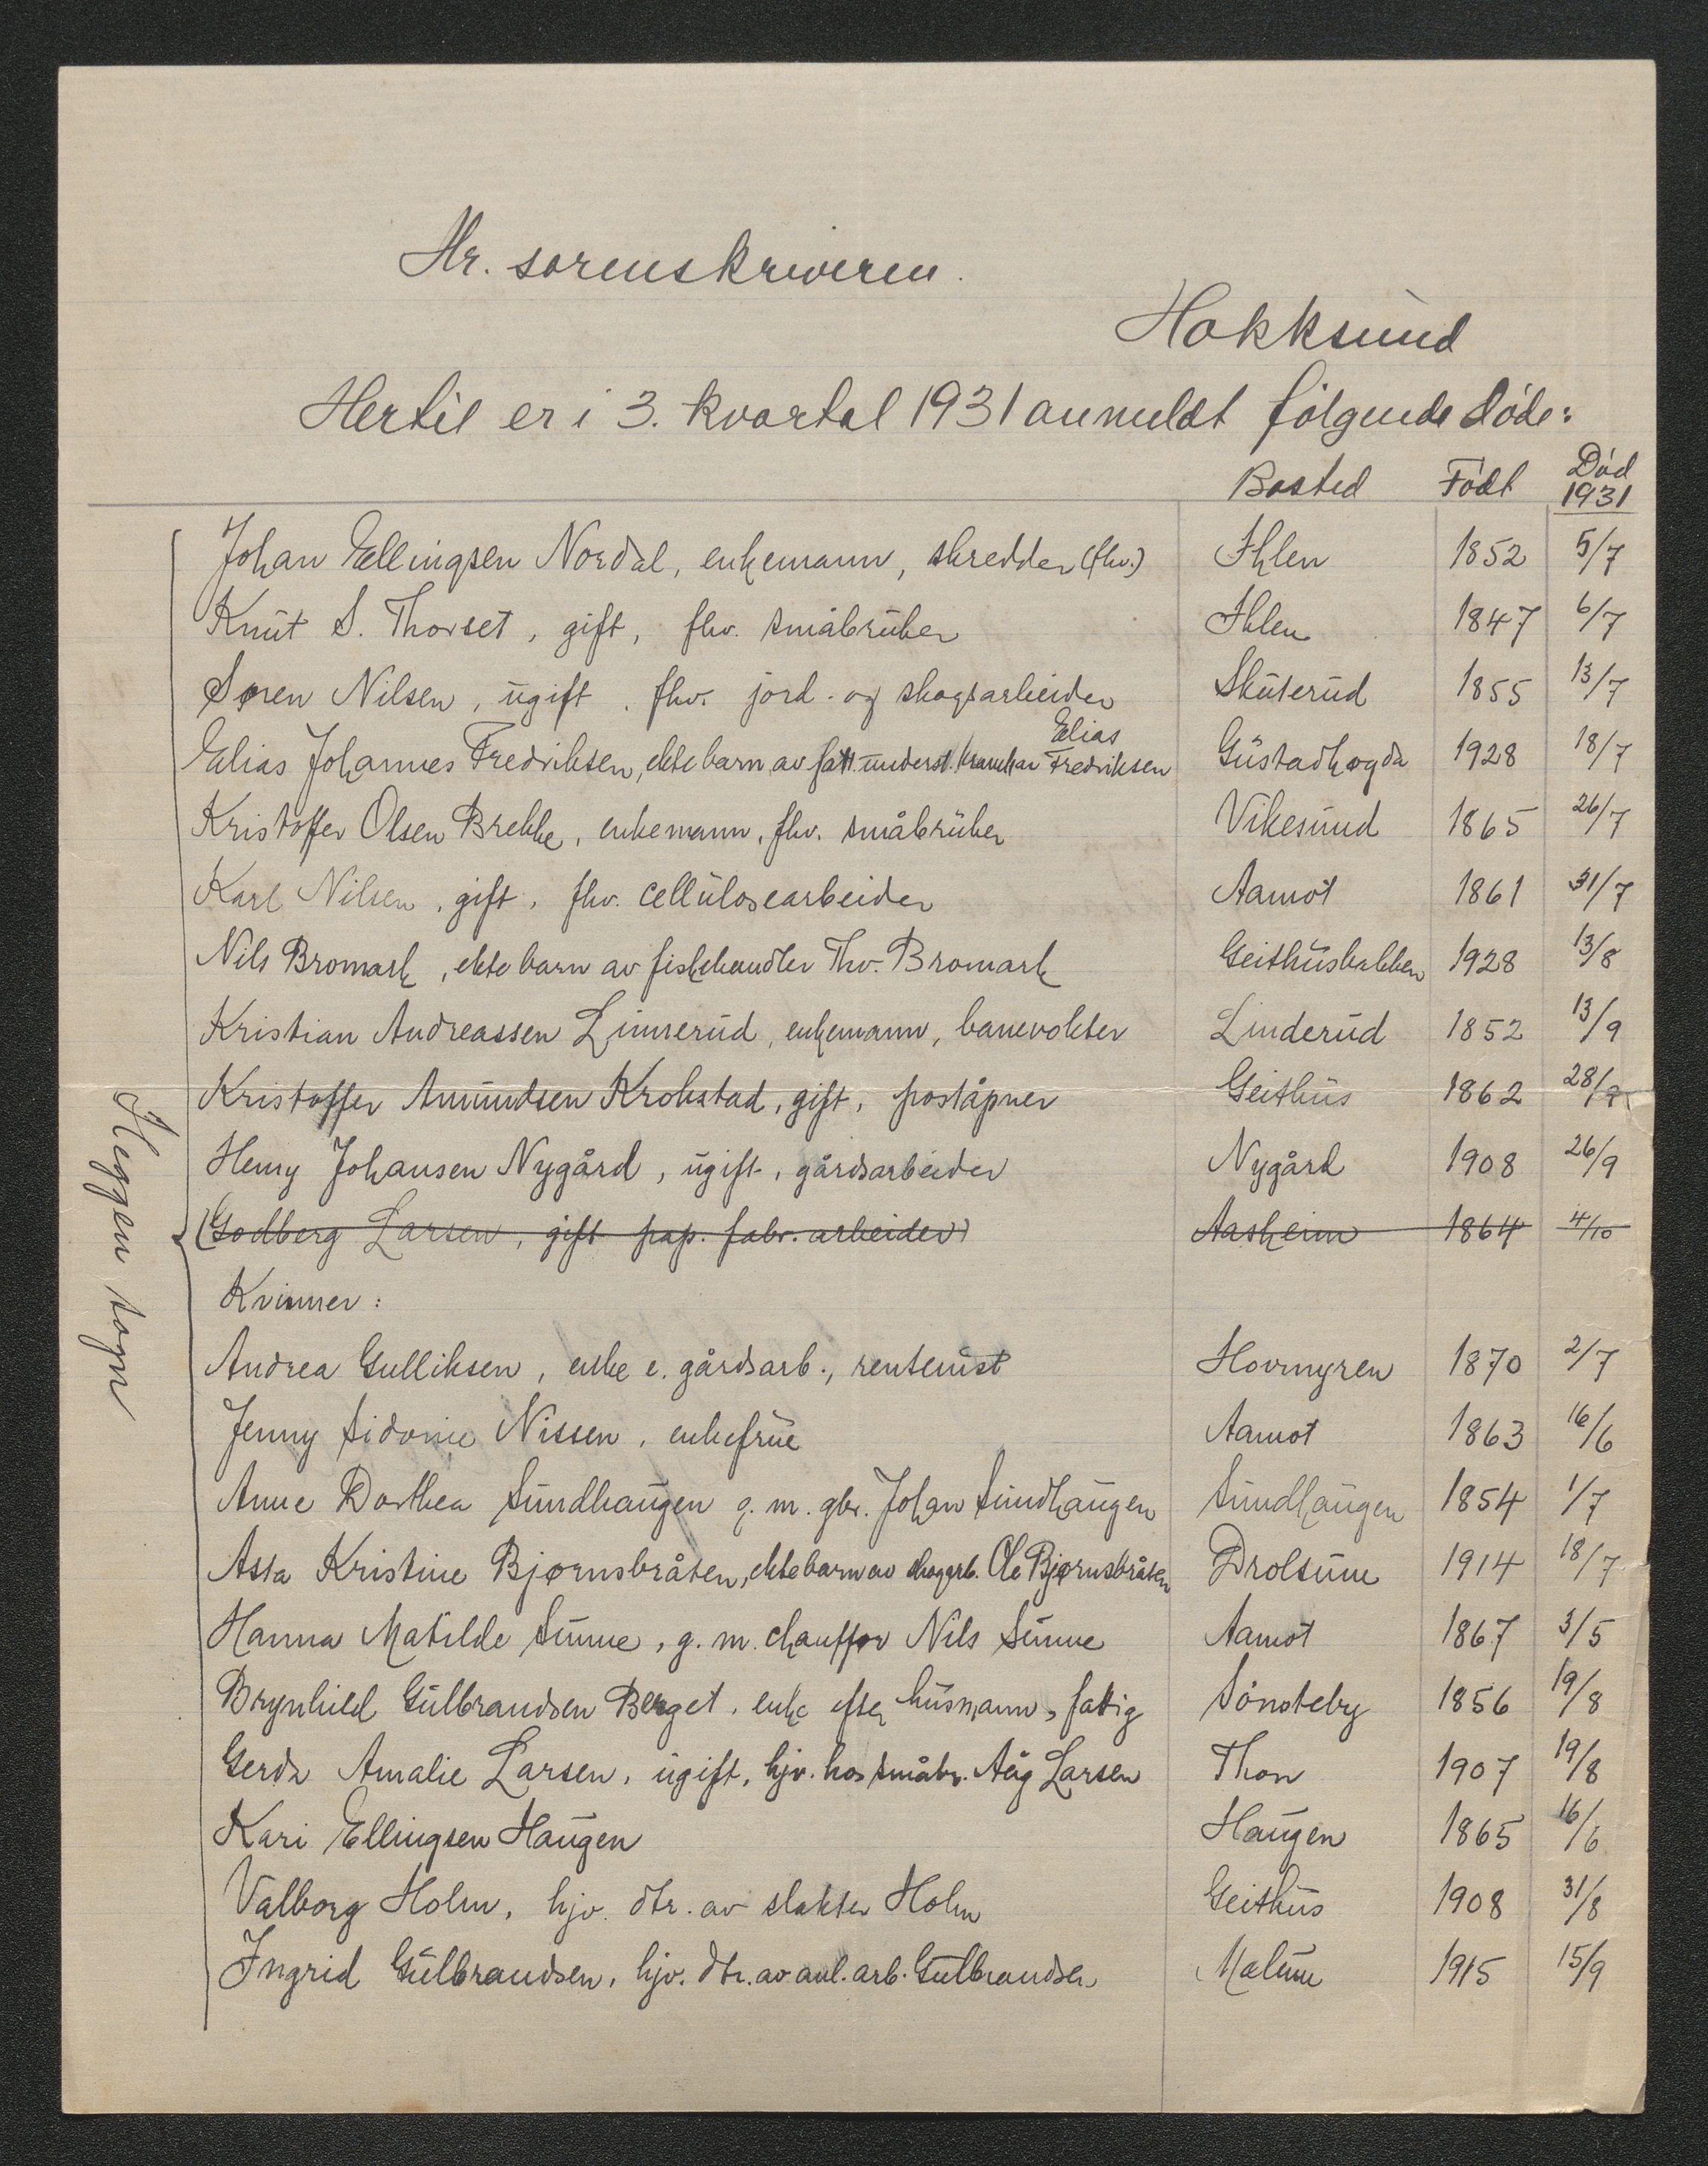 Hr. sorenskriveren.
Hokksund
Hertil er i 3. kvartal 1931 anmeldt følgende døde:
Bosted Født Død 1931
Johan Ellingsen Nordal, enkemann, skredder (fhv.) Ihlen 1852 5/7
Knut S. Thorset, gift, fhv. småbruker Ihlen 1847 6/7
Søren Nilsen, ugift, fhv. jord- og skogsarbeider Skuterud 1855 13/7
Elias
Elias Johannes Fredriksen, ekte barn av fatt. underst. Fredriksen Gustadhøgda 1928 18/7
Kristoffer Olsen Brekke, enkemann, fhv. småbruker Vikesund 1865 26/7
Karl Nilsen, gift, fhv. cellulosearbeider Aamot 1861 31/7
Nils Bromark, ekte barn av fiskehandler Thv. Bromark Geithusbakken 1928 13/8
Kristian Andreassen Linnerud, enkemann, banevokter Linderud 1852 13/9
Kristoffer Amundsen Krokstad, gift, poståpner Geithus 1862 28/8
Henry Johansen Nygård, ugift, gårdsarbeider Nygård 1908 26/9
(Godberg Larsen, gift pap. fabr. arbeider) Aasheim 1864 4/10
Kvinner:
Andrea Gulliksen, enke e. gårdsarb., rentenist Hovmyren 1870 2/7
Jenny Sidonie Nissen, enkefrue Aamot 1863 16/6
Anne Dorthea Sundhaugen g. m. gbr. Johan Sundhaugen Sundhaugen 1854 1/7
Asta Kristine Bjørnsbråten, ekte barn av skogarb. Ole Bjørnsbråten Drolsum 1914 18/7
Hanna Matilde Sunne, g. m. chauffør Nils Sunne Aamot 1867 3/5
Brynhild Gulbrandsen Berget, enke efter husmann, fattig Sønsteby 1856 19/8
Gerda Amalie Larsen, ugift, hjv. hos småbr. Aug Larsen Thon 1907 19/8
Kari Ellingsen Haugen Haugen 1865 16/6
Valborg Holm, hjv. dtr. av slakter Holm Geithus 1908 31/8
Ingrid Gulbrandsen, hjv. dtr. av anl. arb. Gulbrandsen Malum 1915 15/9
Heggen sogn